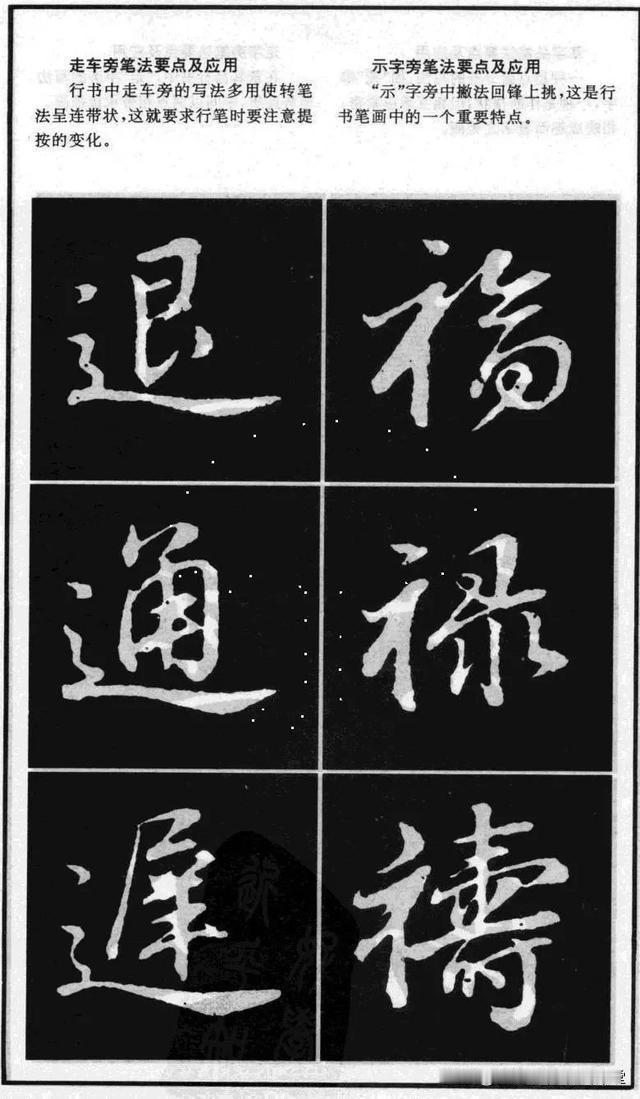 走车旁笔法要点及应用
行书中走车旁的写法多用使转笔
法呈连带状，这就要求行笔时要注意提
按的变化。
示字旁笔法要点及应用
“示”字旁中撇法回锋上挑，这是行
书笔画中的一个重要特点。
退
福
通
禄
遲
禱